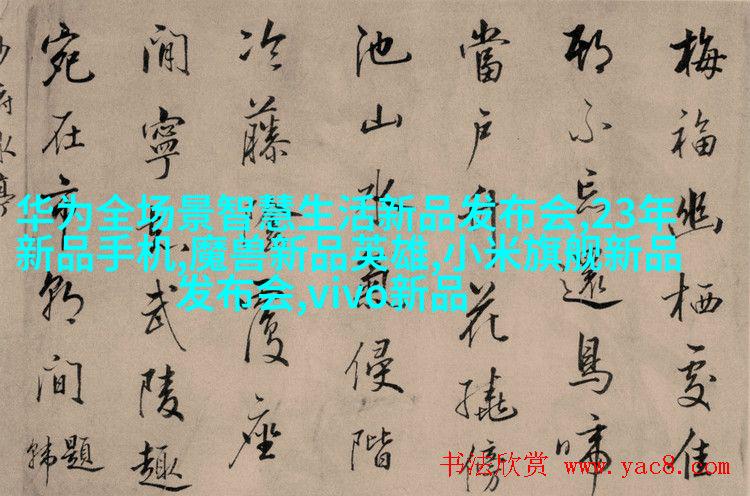 梅福幽栖處佳
期不忘還鳥啼
當戶竹花繞傍
池山侵階
冷藤覆座
閒寧知武陵趣
宛在市朝間
題韩
府水亭
华为全场景智慧生活新品发布会,23年
新品手机,魔兽新品英雄,小米旗舰新品
发布会,vivo新品
书法欣赏 www.yac8.com